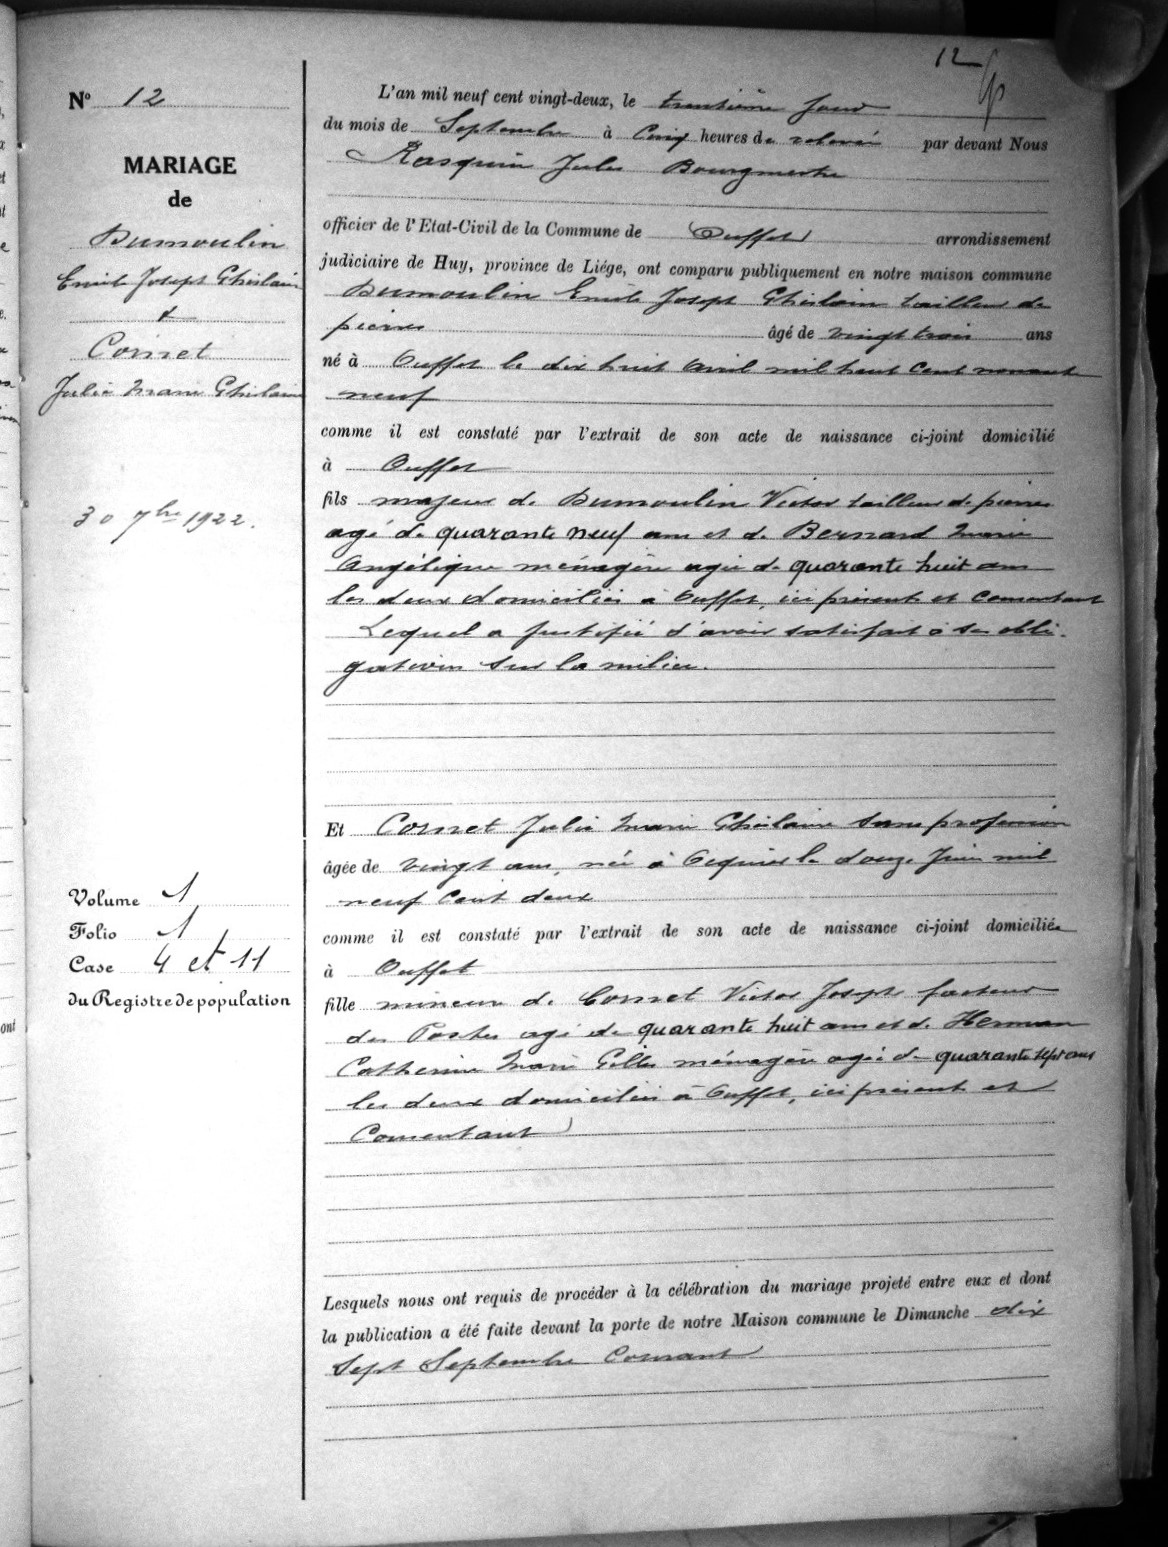 12
N° 12
MARIAGE
de
Dumoulin
Emile Joseph Ghislain
&
Cornet
Julia Marie Ghislaine
30 7bre 1922.
Volume 1
Folio 1
Case 4 et 11
du Registre de population
L'an mil neuf cent vingt-deux, le trentième jour
du mois de Septembre à Cinq heures de relevée par devant Nous
Rasquin Jules Bourgmestre
officier de l'Etat-Civil de la Commune de Ouffet arrondissement
judiciaire de Huy, province de Liége, ont comparu publiquement en notre maison commune
Dumoulin Emile Joseph Ghislain tailleur de
pierres âgé de vingt trois ans
né à Ouffet le dix huit Avril mil huit Cent nonante
neuf
comme il est constaté par l'extrait de son acte de naissance ci-joint domicilié
à Ouffet
fils majeur de Dumoulin Victor tailleur de pierres
agé de quarante neuf ans et de Bernard Marie
Angélique ménagère agée de quarante huit ans
les deux domiciliés à Ouffet, ici présents et Consentant
Lequel a justifié d'avoir satisfait à ses obli-
gations sur la milice.
Et Cornet Julia Marie Ghislaine sans profession
âgée de vingt ans, née à Ocquier le douze Juin mil
neuf Cent deux
comme il est constaté par l'extrait de son acte de naissance ci-joint domiciliée
à Ouffet
fille mineure de Cornet Victor Joseph facteur
des Postes agé de quarante huit ans et de Herman
Catherine Marie Gilles ménagère agée de quarante sept ans
les deux domiciliés à Ouffet, ici présents et
Consentant
Lesquels nous ont requis de procéder à la célébration du mariage projeté entre eux et dont
la publication a été faite devant la porte de notre Maison commune le Dimanche dix
Sept Septembre Courant